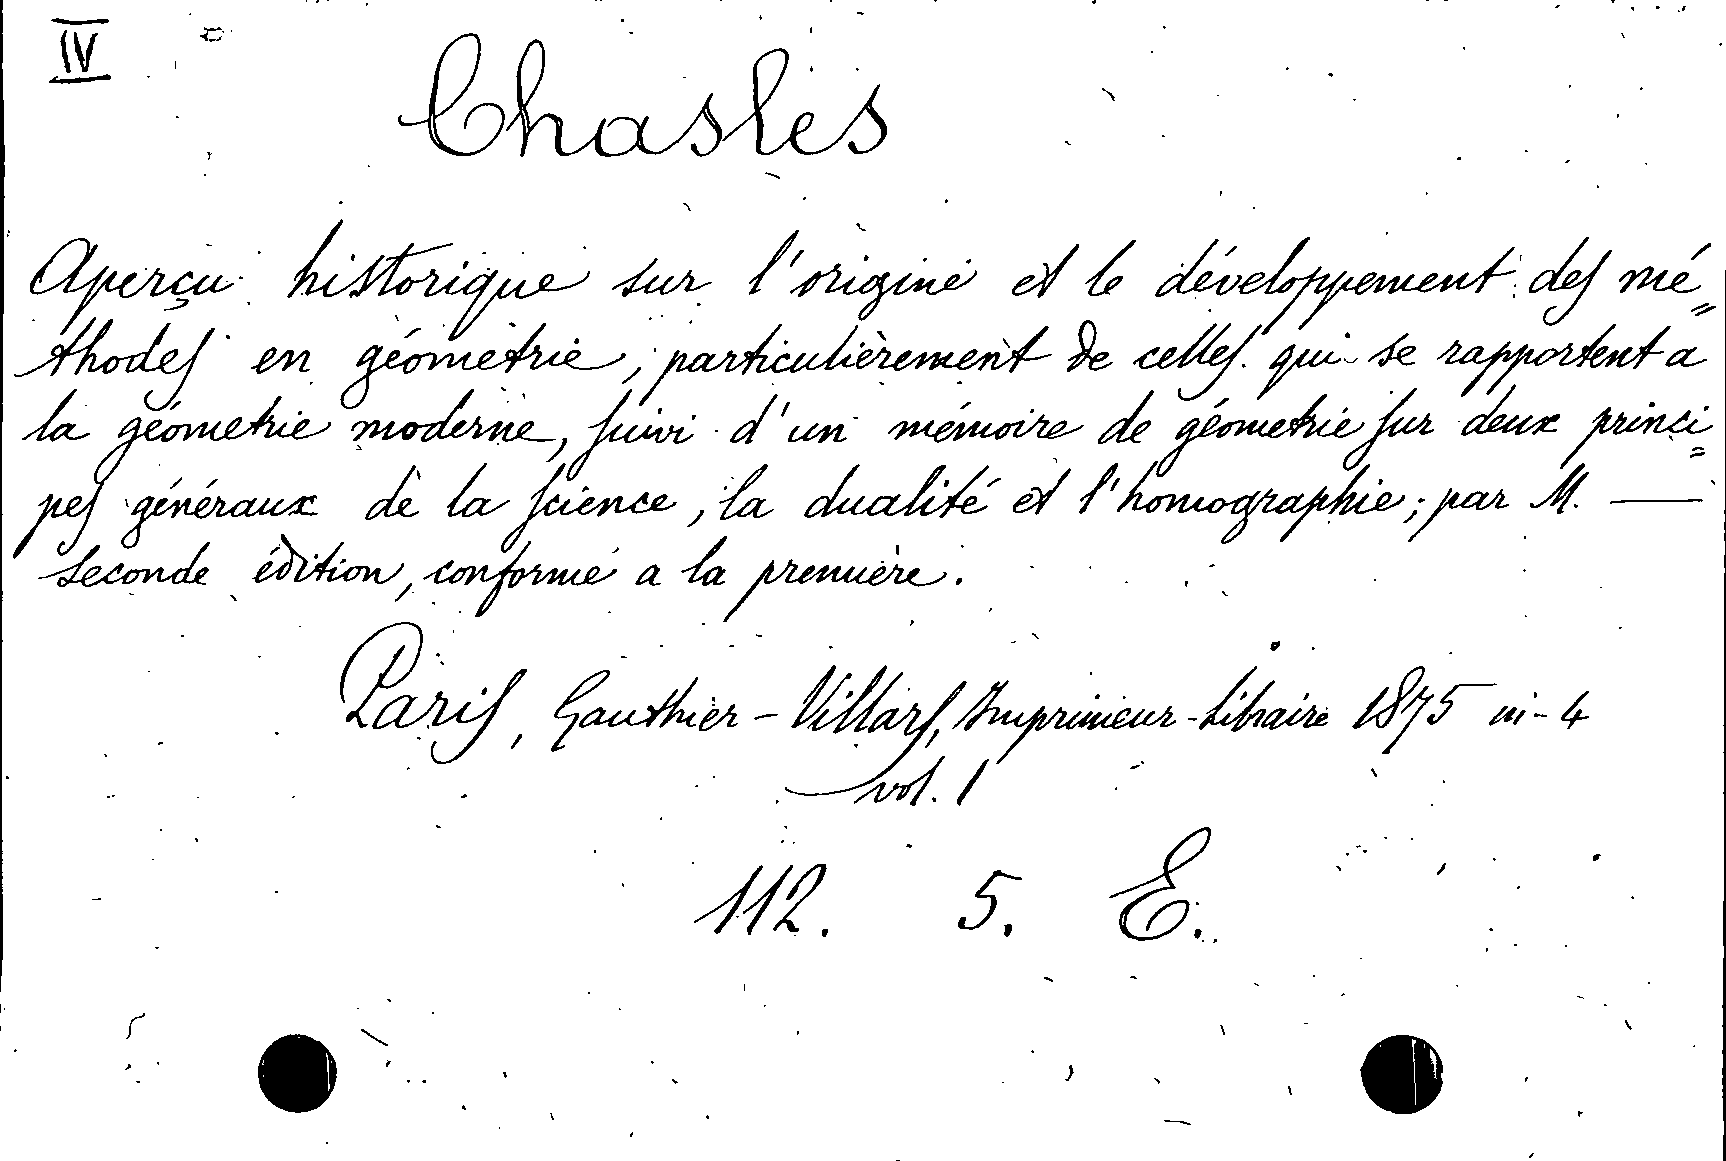 IV
Chasles
Aperçu historique sur l'origine et le développement des mé=
thodes en géométrie, particulièrement de celles qui se rapportent a
la géometrie moderne, suivi d'un mémoire de géometrie sur deux princi=
pes généraux de la science, la dualité et l'homographie; par M. —
seconde édition, conforme a la première.
Paris, Gauthier-Villars, Imprimeur-Libraire 1875 in-4
vol. 1
112. 5. E.